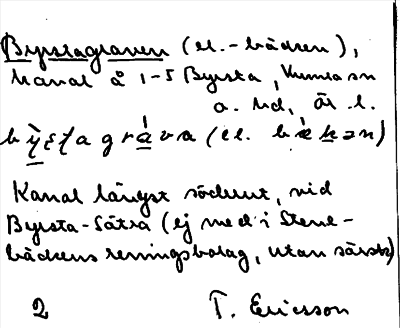 Byrstagraven (el. -bäcken),
kanal å 1-5 Byrsta, Kumla sn
a. hd, Är. l.
(el.
Kanal längst söderut, vid
Byrsta-Sätra (ej med i Stene-
bäckens reningsbolag, utan särsk)
2 T. Ericsson